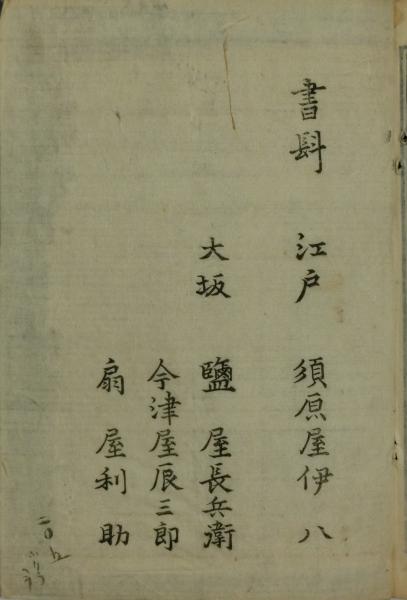 書肆 江戸 須原屋伊八
大坂 鹽屋長兵衛
今津屋辰三郎
扇屋利助